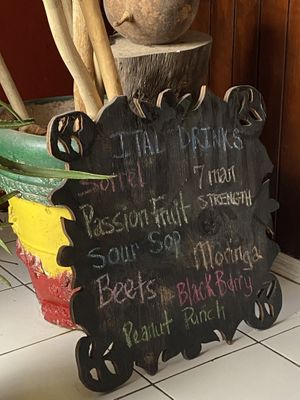 ITAL DRINKS
Sorrel
7 man
STRENGTH
Passion Fruit
Sour Sop
Moringa
Beets
BlackBerry
Peanut Punch